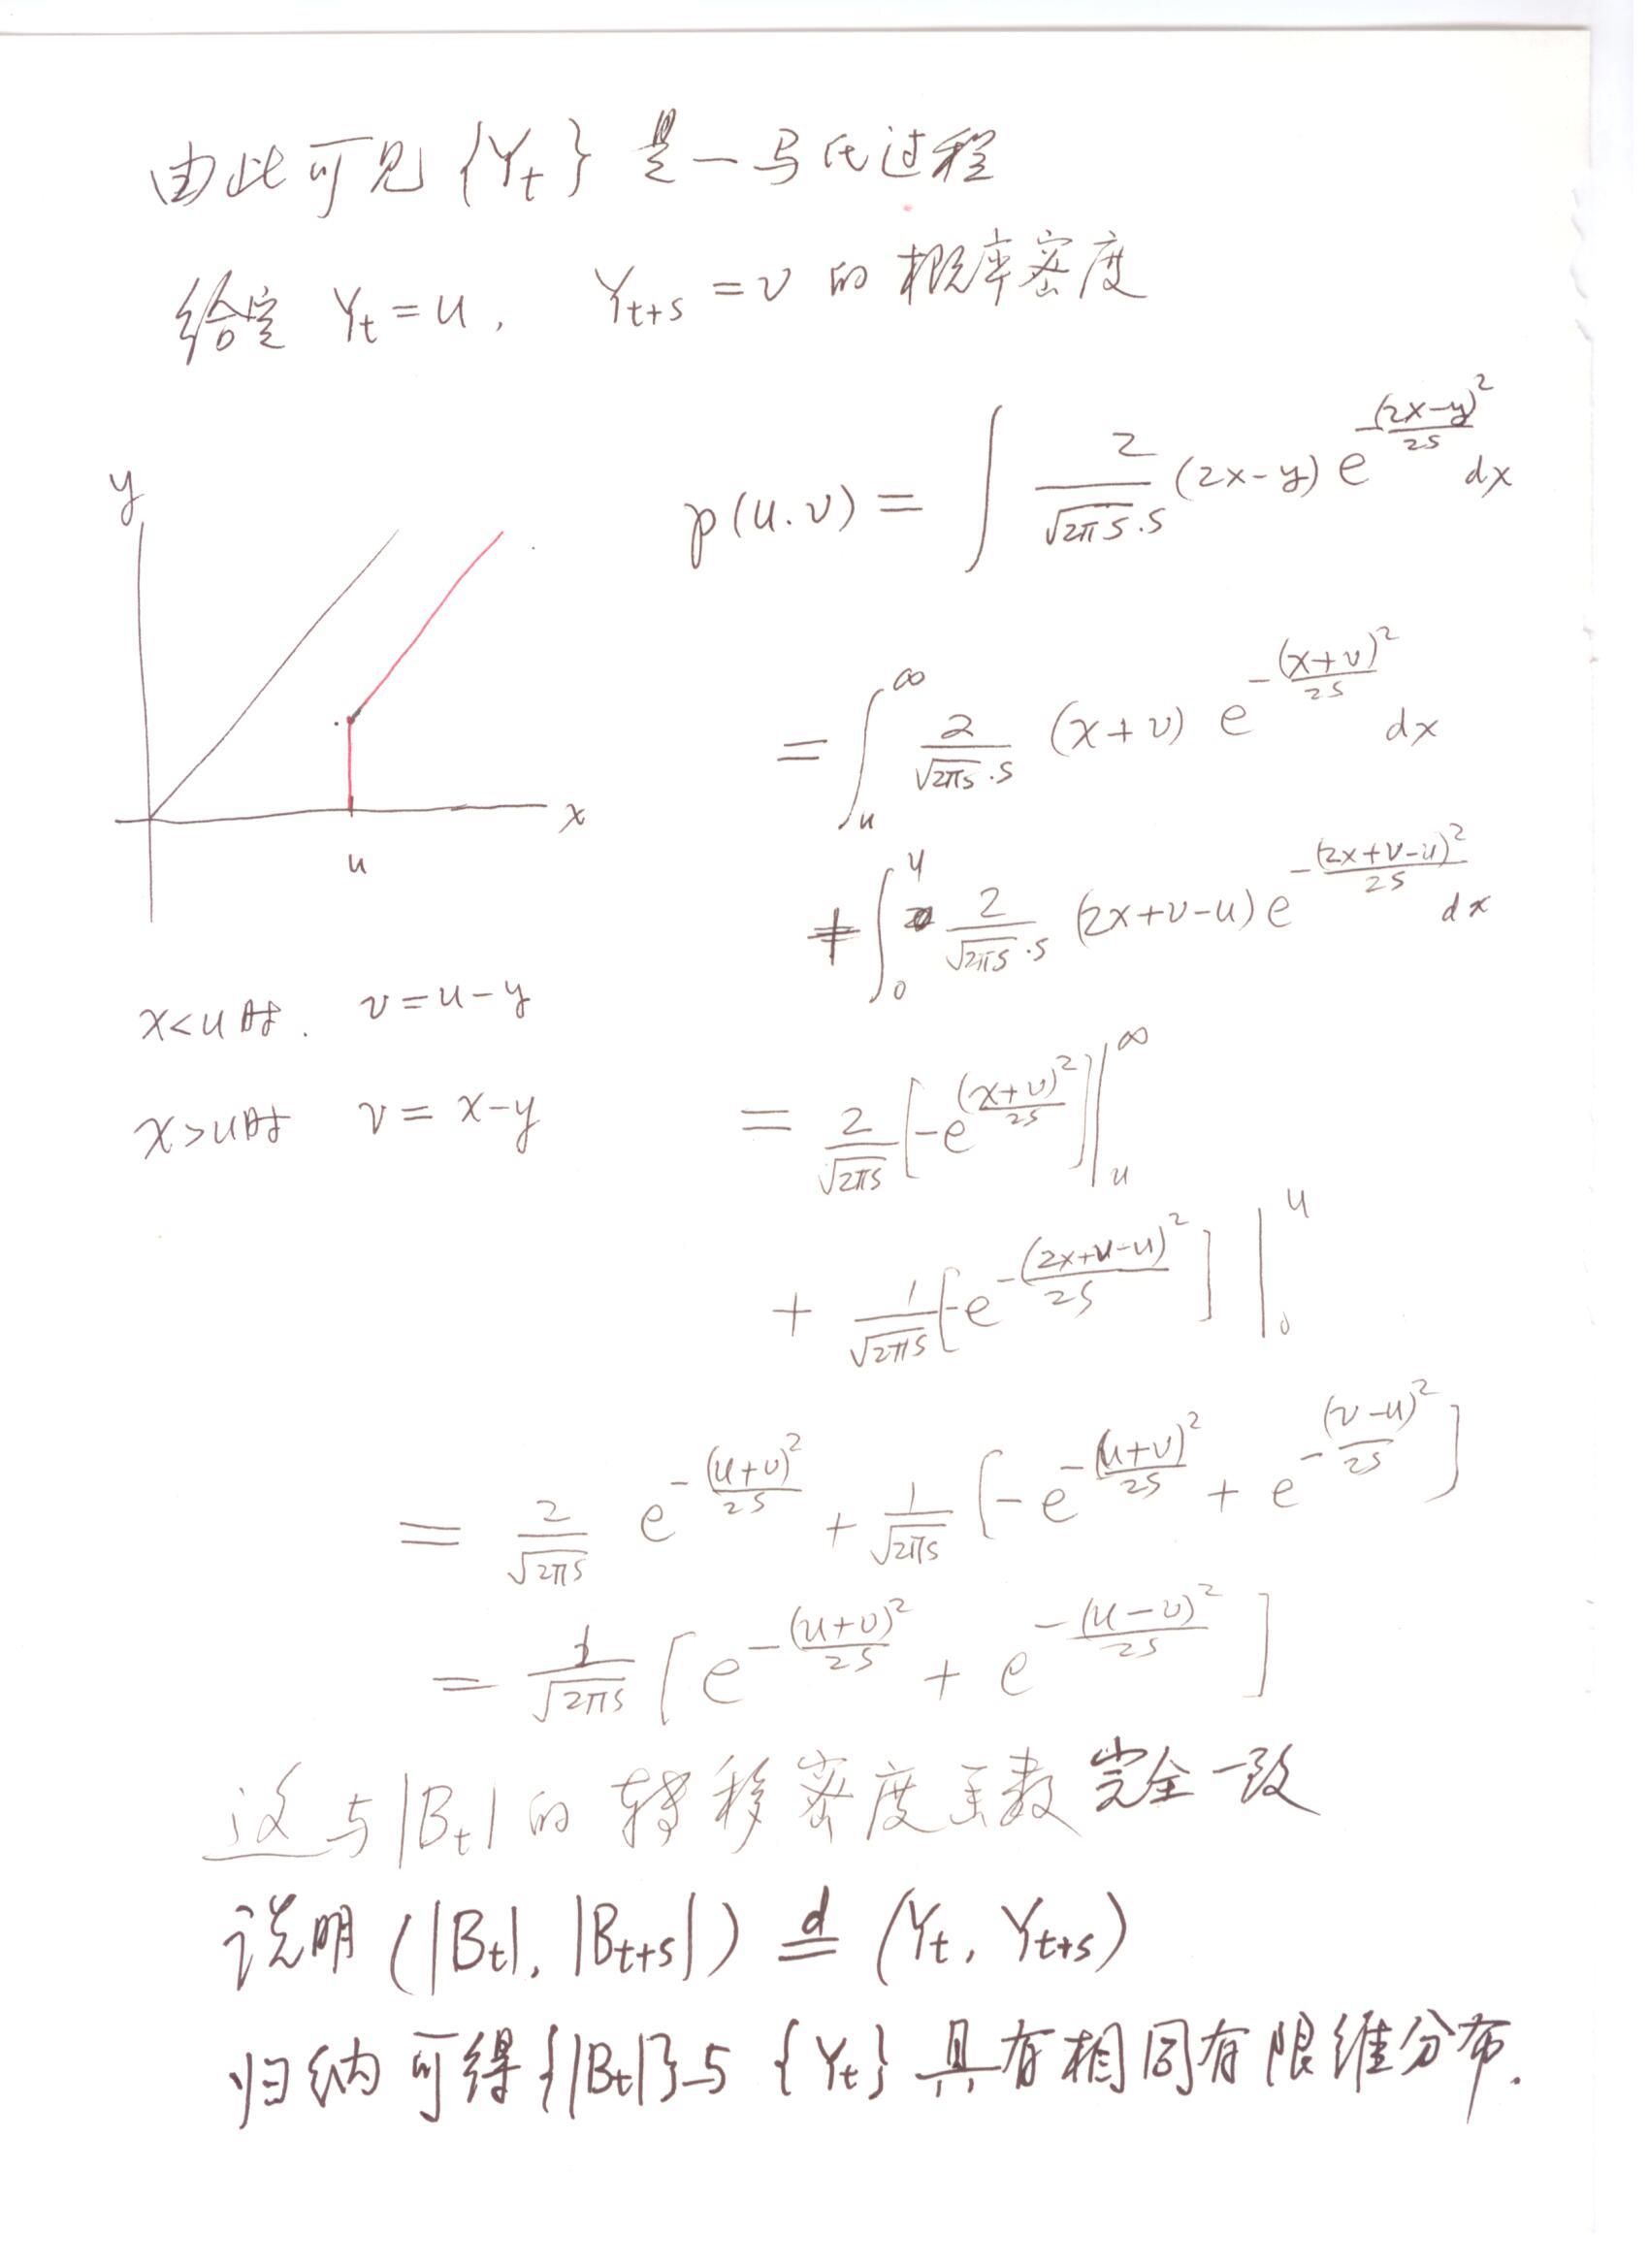 由此可见 {Y_t} 是一马氏过程
给定 Y_t = u, Y_{t+s} = v 的概率密度
y
p(u.v) = ∫ \frac{2}{\sqrt{2πs}·s} (2x-y) e^{-\frac{(2x-y)^2}{2s}} dx
= ∫_u^∞ \frac{2}{\sqrt{2πs}·s} (x+v) e^{-\frac{(x+v)^2}{2s}} dx
x
u
+ ∫_0^u \frac{2}{\sqrt{2πs}·s} (2x+v-u) e^{-\frac{(2x+v-u)^2}{2s}} dx
x<u时. v=u-y
x>u时 v=x-y
= \frac{2}{\sqrt{2πs}} [-e^{\frac{(x+v)^2}{2s}}] |_u^∞
+ \frac{1}{\sqrt{2πs}} [-e^{-\frac{(2x+v-u)^2}{2s}}] |_0^u
= \frac{2}{\sqrt{2πs}} e^{-\frac{(u+v)^2}{2s}} + \frac{1}{\sqrt{2πs}} [-e^{-\frac{(u+v)^2}{2s}} + e^{-\frac{(v-u)^2}{2s}}]
= \frac{1}{\sqrt{2πs}} [e^{-\frac{(u+v)^2}{2s}} + e^{-\frac{(u-v)^2}{2s}}]
这与|B_t|的转移密度函数完全一致
说明 (|B_t|, |B_{t+s}|) \stackrel{d}{=} (Y_t, Y_{t+s})
归纳可得{|B_t|}与{Y_t}具有相同有限维分布.